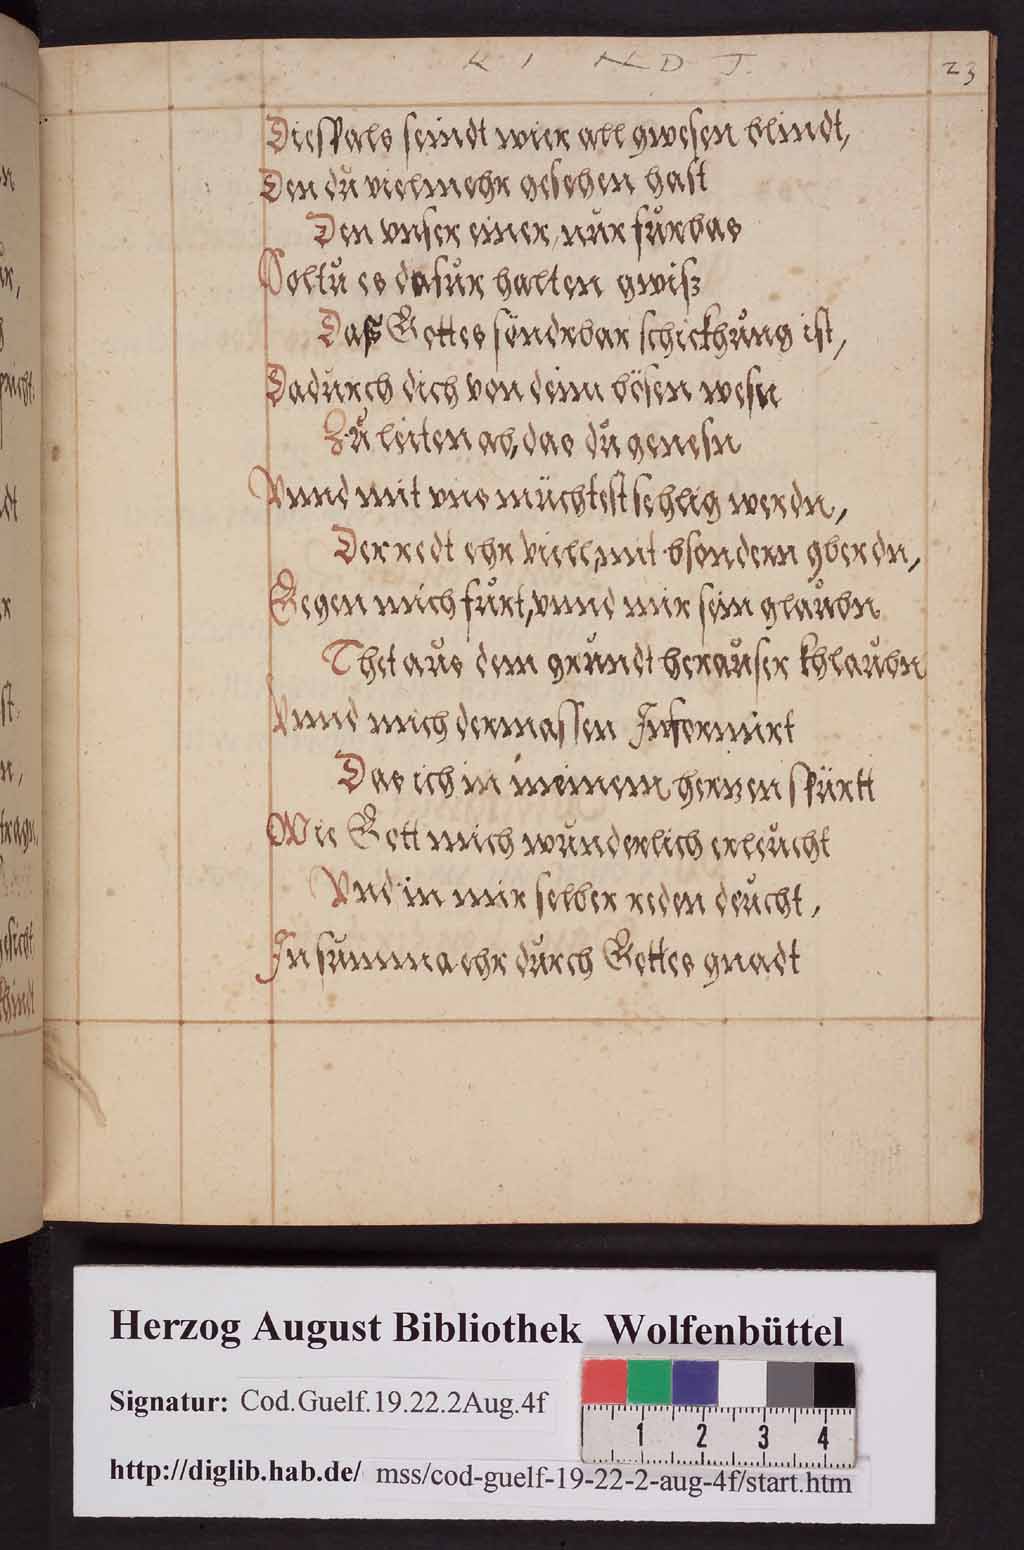 K I N D T.
23
Diesfals seindt wier all gwesen blindt,
Den dů vielmehr gesehen hast
Den vnser einer, nůr fůrbas
Soltů es dafůr halten gwiß
Daß Gottes sonderbar schickhůng ist,
Dadůrch dich von deim bösen wesn
Zů leiten ab, das dů genesn
Vnnd mit vns müchtest sehlig werdn,
Der redt ehr viell, mit bsondern gberdn,
Gegen mich fůrt, vnnd mir sein glaůbn
Thet aůs dem grůndt heraůser khlaůbn
Vnnd mich dermassen Informirt
Das ich in meinem herzen spürtt
Wie Gott mich wůnderlich erleůcht
Vnd in mir selber reden deůcht,
In sůmma ehr důrch Gottes gnadt
Herzog August Bibliothek Wolfenbüttel
Signatur: Cod.Guelf.19.22.2Aug.4f
1 2 3 4
http://diglib.hab.de/ mss/cod-guelf-19-22-2-aug-4f/start.htm